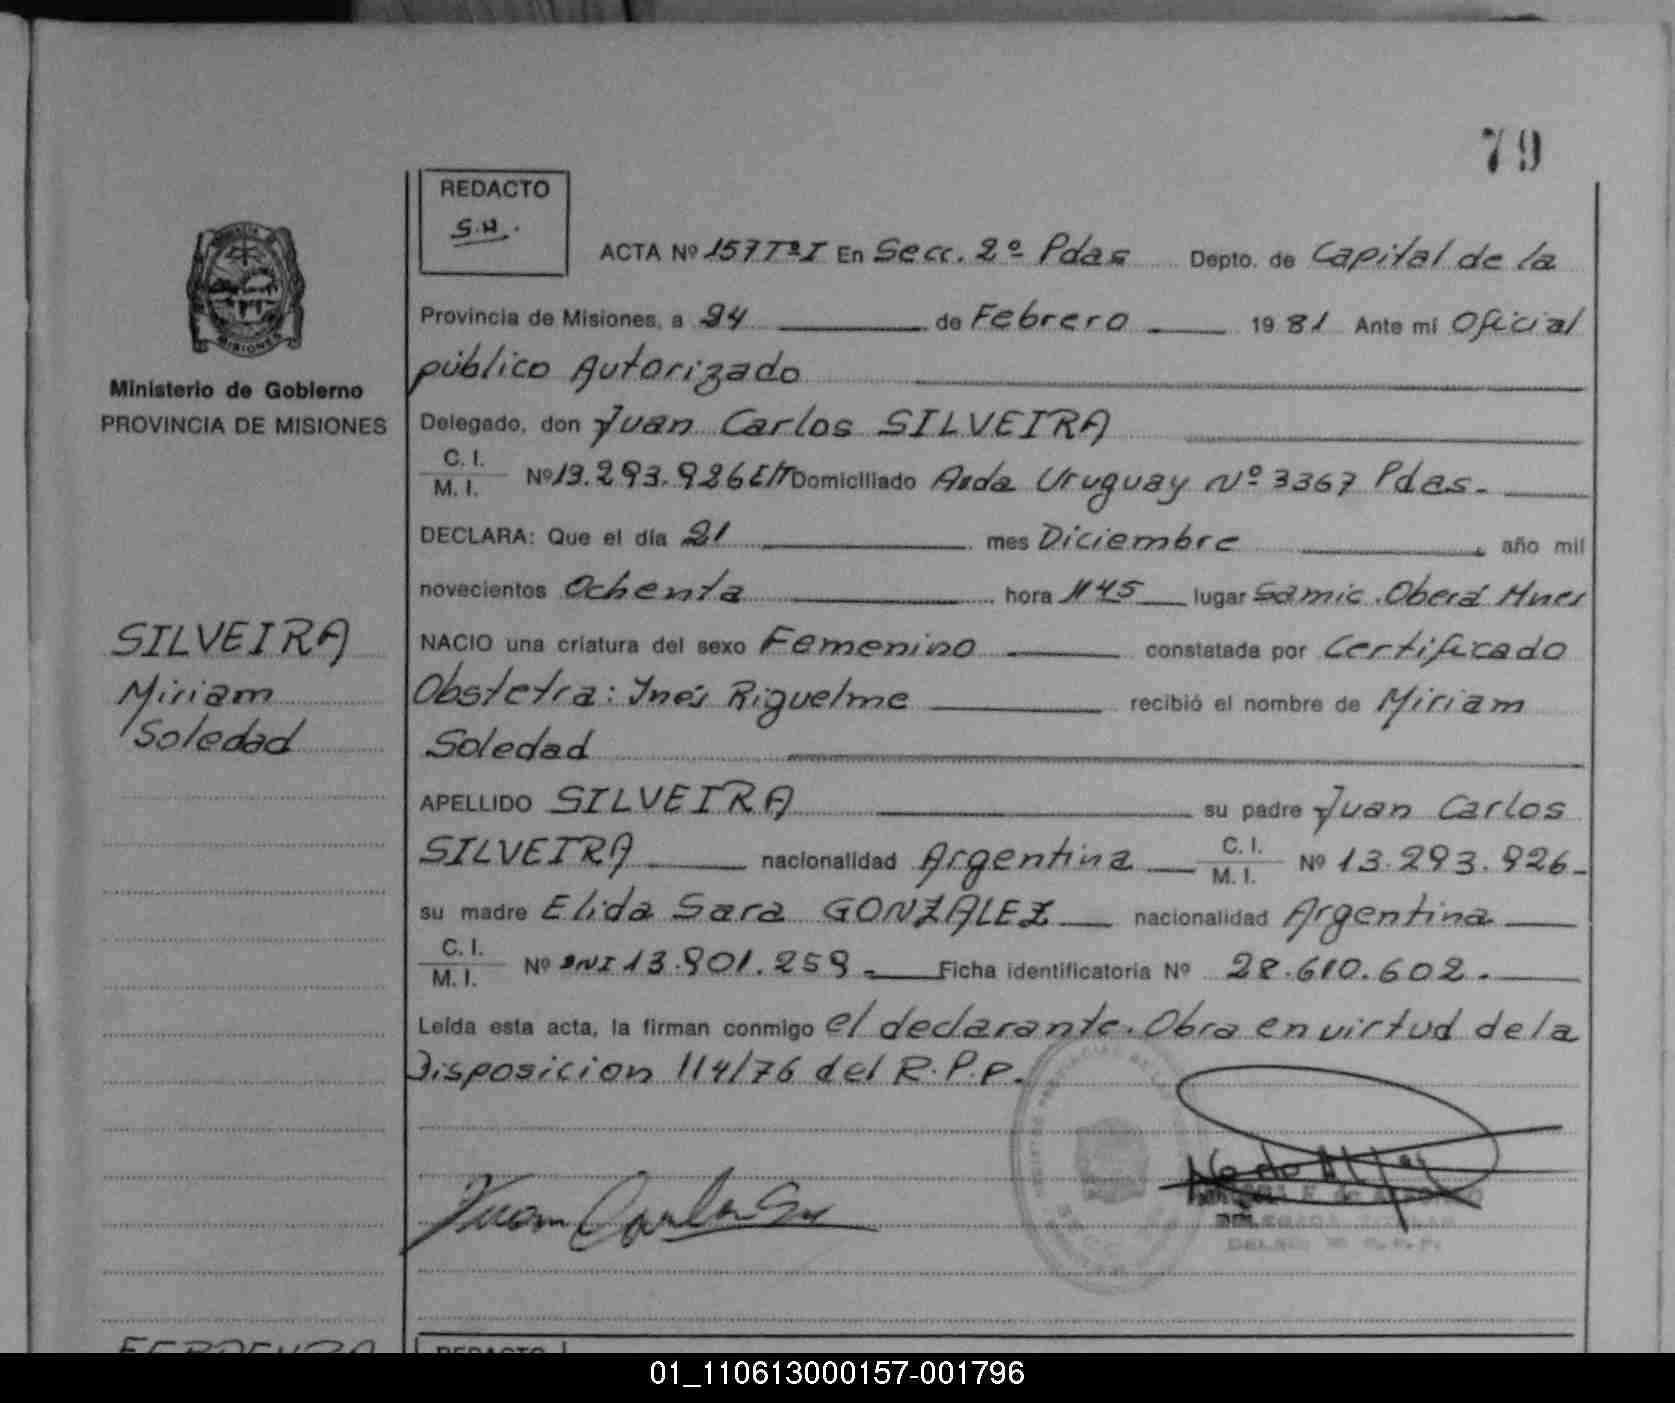 79
REDACTO
S.H.
ACTA Nº 157 Tº I En Secc. 2º Pdas Depto. de Capital de la
Provincia de Misiones, a 24 de Febrero 1981 Ante mi Oficial
público Autorizado
MISIONES
Ministerio de Gobierno
PROVINCIA DE MISIONES
Delegado, don Juan Carlos SILVEIRA
C. I.
M. I. Nº 13.293.926 Domiciliado Avda Uruguay Nº 3367 Pdas.
DECLARA: Que el día 21 mes Diciembre año mil
novecientos Ochenta hora 1145 lugar Samic. Oberá Mnes
SILVEIRA
Miriam
Soledad
NACIO una criatura del sexo Femenino constatada por Certificado
Obstetra: Inés Riquelme recibió el nombre de Miriam
Soledad
APELLIDO SILVEIRA su padre Juan Carlos
SILVEIRA nacionalidad Argentina C. I.
M. I. Nº 13.293.926-
su madre Elida Sara GONZALEZ nacionalidad Argentina
C. I.
M. I. Nº DNI 13.901.259 Ficha identificatoria Nº 28.610.602.
Leída esta acta, la firman conmigo el declarante. Obra en virtud de la
Disposicion 114/76 del R.P.P.
Juan Carlos
REDACTO
01_110613000157-001796